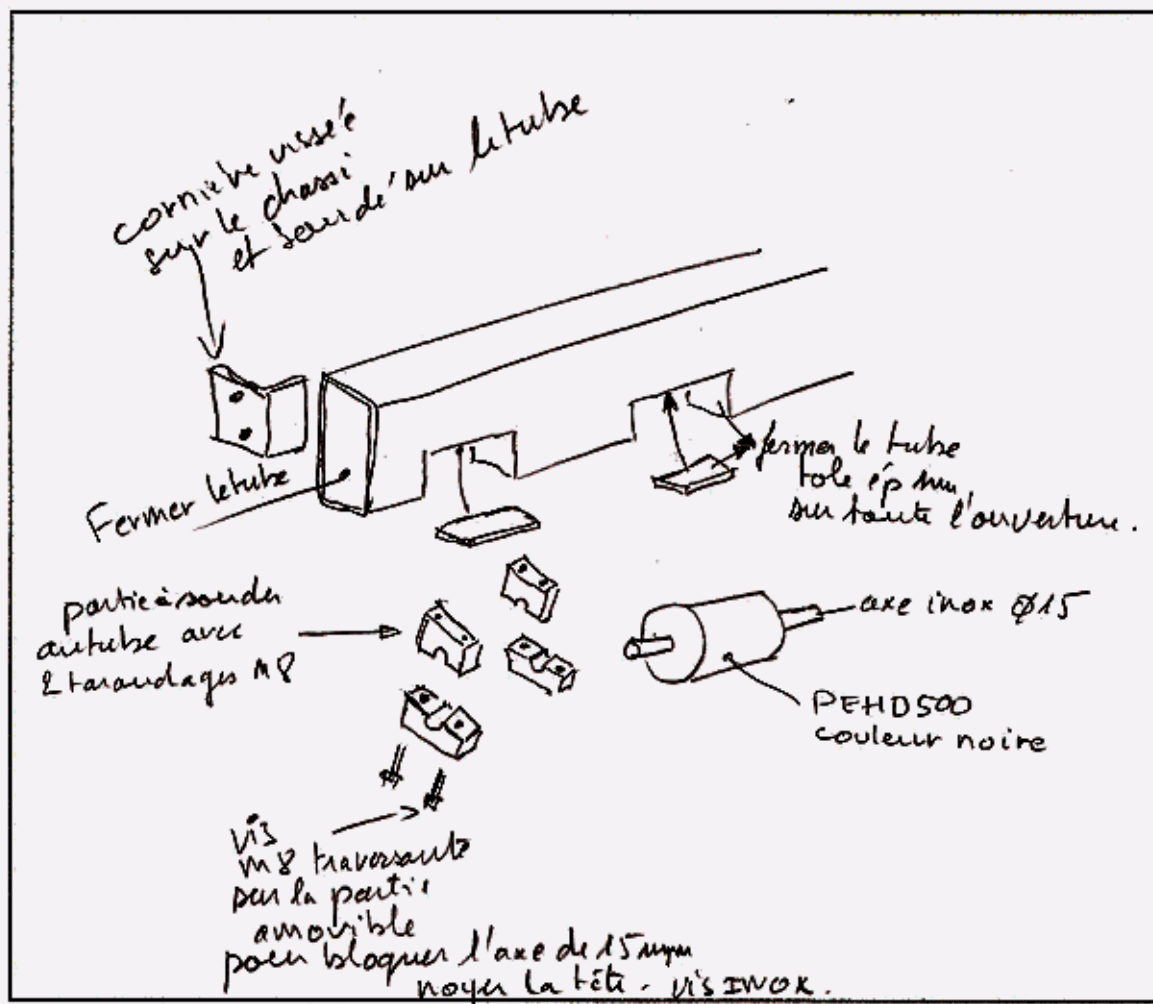 cornière vissée
sur le chassi
et soudé sur le tube
Fermer le tube
fermer le tube
tole ép mm,
sur toute l'ouverture.
partie à souder
au tube avec
2 taraudages M8
axe inox Ø15
PEHD500
couleur noire
vis
M8 traversante
sur la partie
amovible
pour bloquer l'axe de 15 mm
noyer la tête. vis INOX.